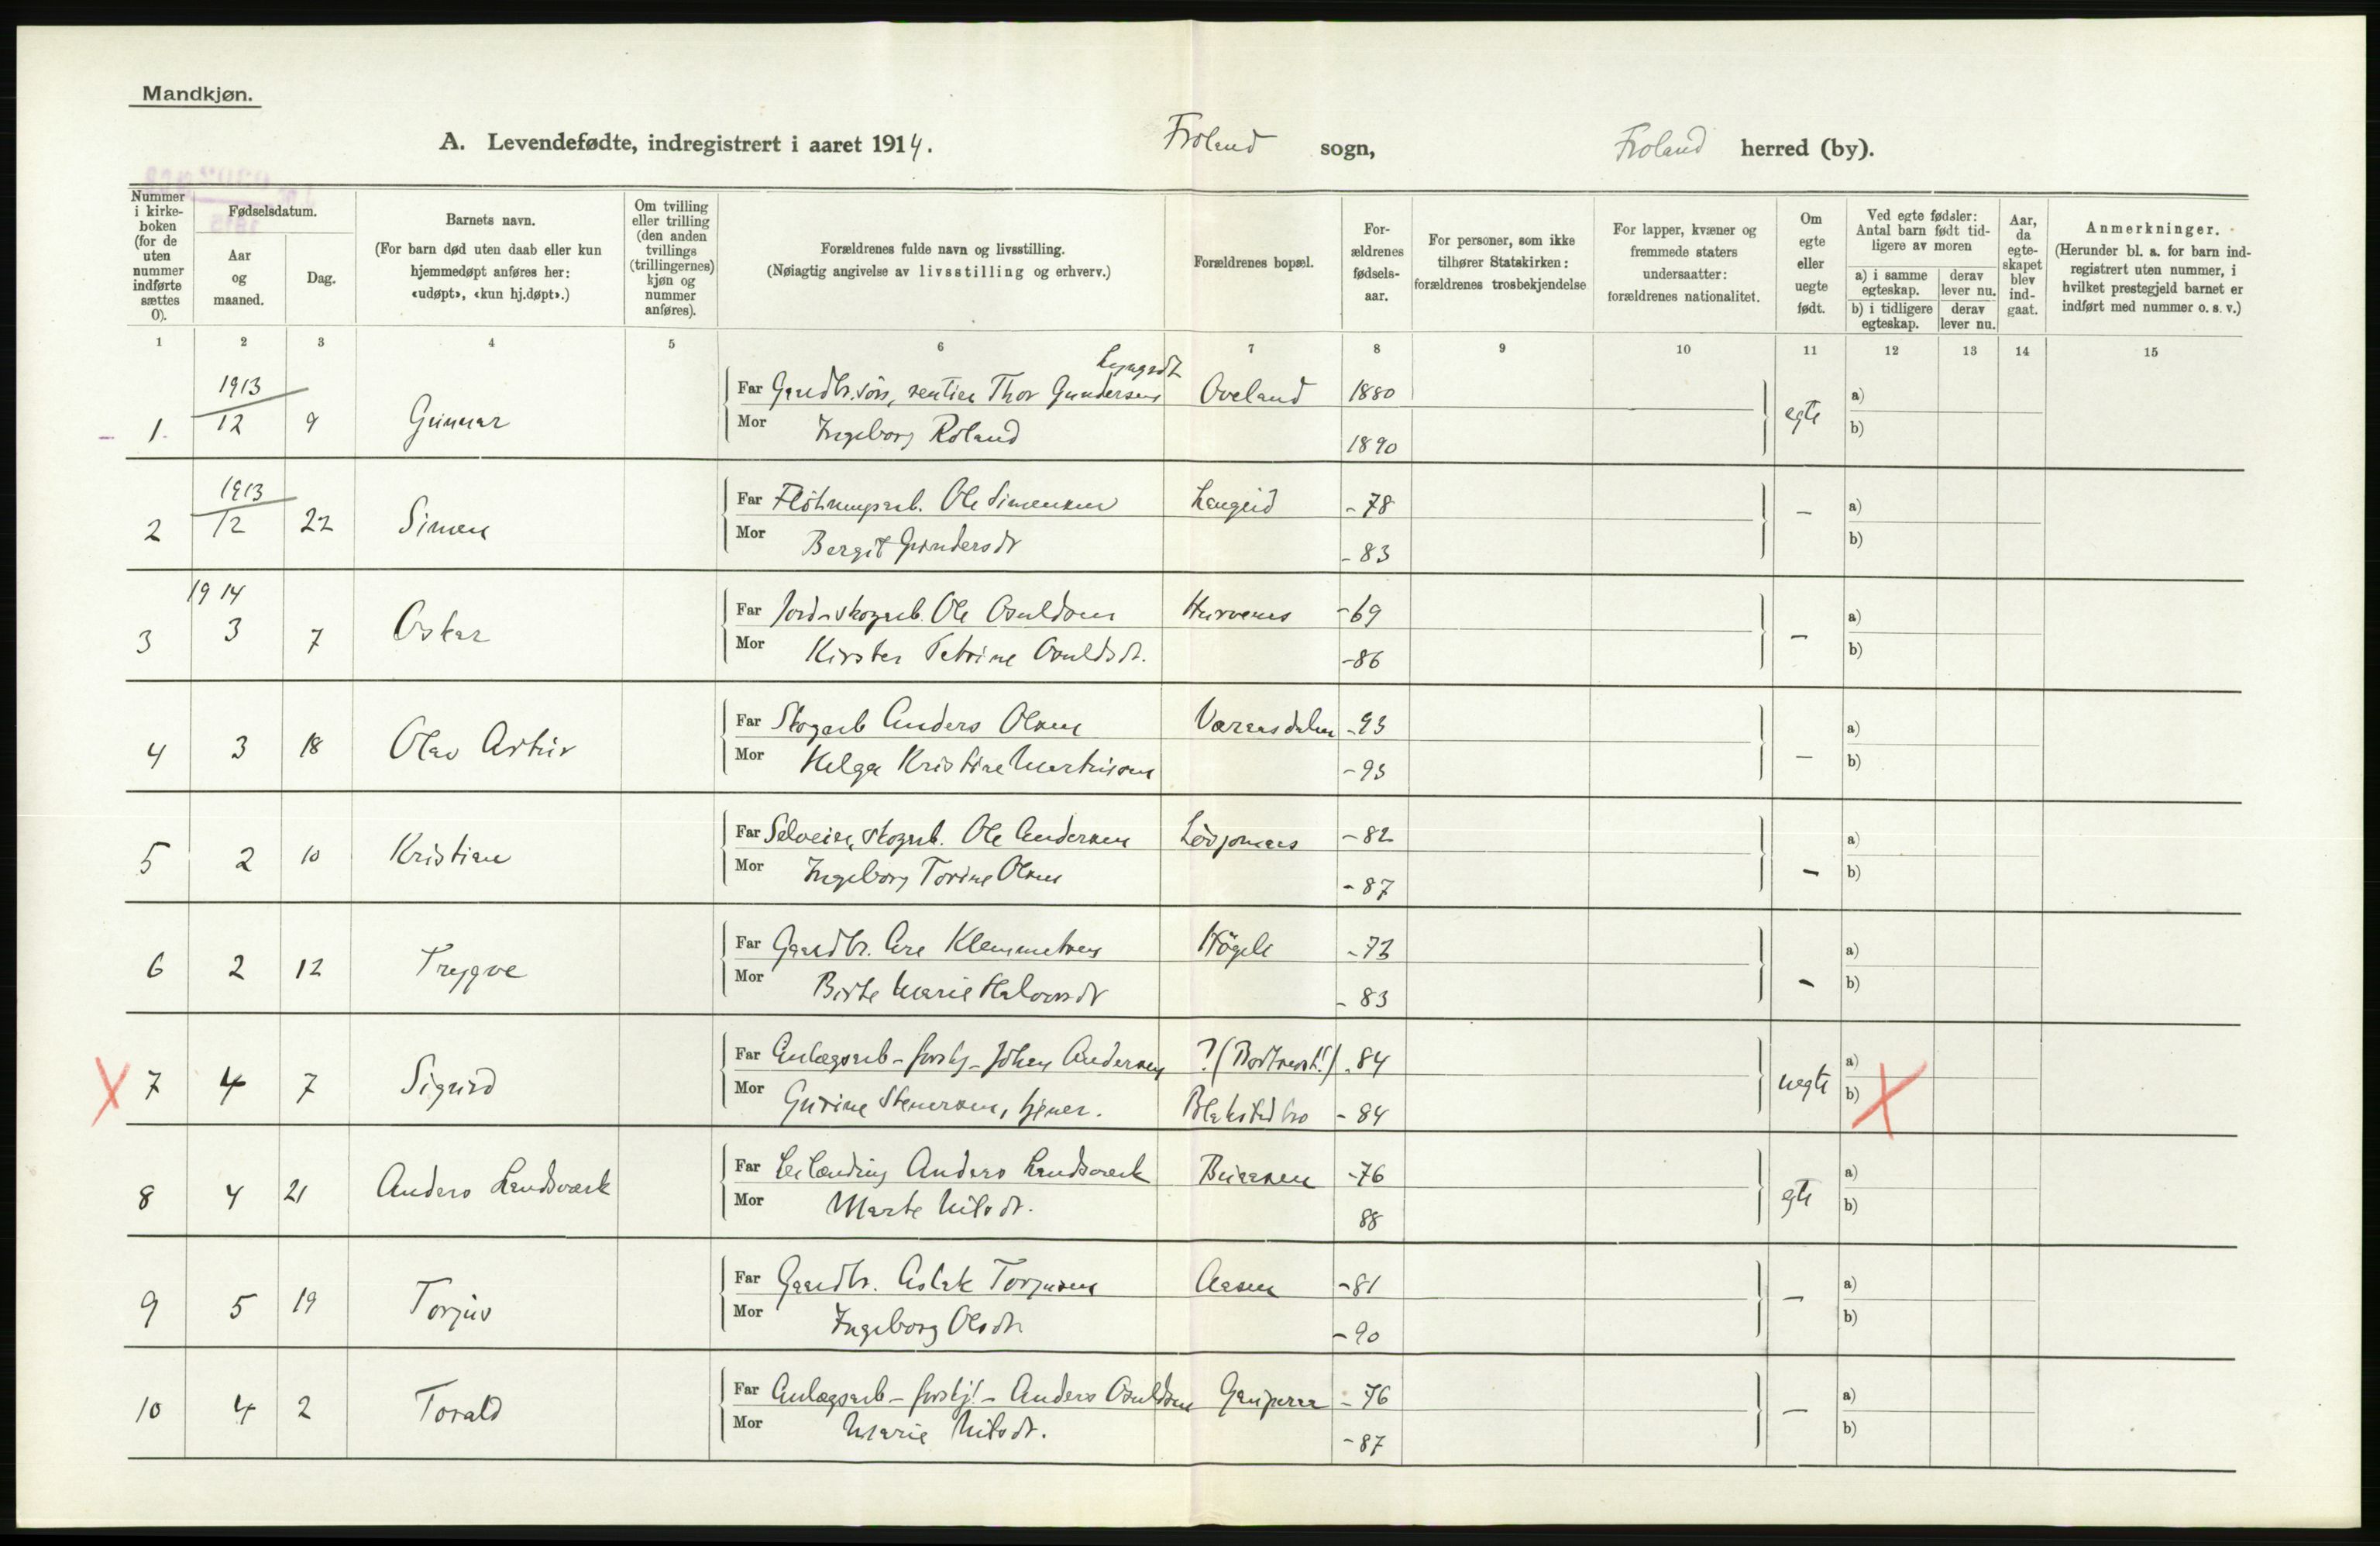 Mandkjøn.
A. Levendefødte, indregistrert i aaret 1914. Froland sogn, Froland herred (by).
Nummer i kirke-boken (for de uten nummer indførte sættes 0).
Fødselsdatum.
Aar og maaned.
Dag.
Barnets navn.
(For barn død uten daab eller kun hjemmedøpt anføres her: «udøpt», «kun hj.døpt».)
Om tvilling eller trilling (den anden tvillings (trillingernes) kjøn og nummer anføres).
Forældrenes fulde navn og livsstilling.
(Nøiagtig angivelse av livsstilling og erhverv.)
Forældrenes bopæl.
For-ældrenes fødsels-aar.
For personer, som ikke tilhører Statskirken: forældrenes trosbekjendelse
For lapper, kvæner og fremmede staters undersaatter: forældrenes nationalitet.
Om egte eller uegte født.
Ved egte fødsler: Antal barn født tid-ligere av moren
a) i samme egteskap.
derav lever nu.
b) i tidligere egteskap.
derav lever nu.
Aar, da egte-skapet blev ind-gaat.
Anmerkninger.
(Herunder bl. a. for barn ind-registrert uten nummer, i hvilket prestegjeld barnet er indført med nummer o. s. v.)
1 2 3 4 5 6 7 8 9 10 11 12 13 14 15
1913
1 12 9 Gunnar Far Gaardbr.søn, rentier Thor Gundersen Oveland 1880 egte a)
Mor Ingeborg Roland 1890 b)
1913
2 12 22 Simen Far Fløtningsarb. Ole Simensen Langeid - 78 — a)
Mor Bergit Gundersdt - 83 b)
1914
3 3 7 Oskar Far Jord- skogarb. Ole Osuldsen Hurvenes - 69 — a)
Mor Kirsten Petrine Osuldsdt. - 86 b)
4 3 18 Olav Arthur Far Skogarb Anders Olsen - 93 — a)
Mor Helga Kristine Martinsen - 93 b)
5 2 10 Kristian Far Selveier, skogarb. Ole Andersen Løvjomaas - 82 — a)
Mor Ingeborg Torine Olsen - 87 b)
6 2 12 Trygve Far Gaardbr. Are Klemmetsen Høgeli - 73 — a)
Mor Birte Marie Halvorsdt - 83 b)
X 7 4 7 Sigurd Far Anlægsarb - forskj - Johan Andersen ? - 84 uegte a)
Mor Gurine Stenersen, tjener. Blakstadbro - 84 b) X
8 4 21 Anders Landsværk Far Leilænding Anders Landsværk - 76 egte a)
Mor Marte Nilsdt. 88 b)
9 5 19 Torjus Far Gaardbr. Aslak Torjusen Aasen - 81 — a)
Mor Ingeborg Olsdt. - 90 b)
10 4 2 Torald Far Anlægsarb - forskj. - Anders Osuldsen - 76 — a)
Mor Marie Nilsdt. - 87 b)